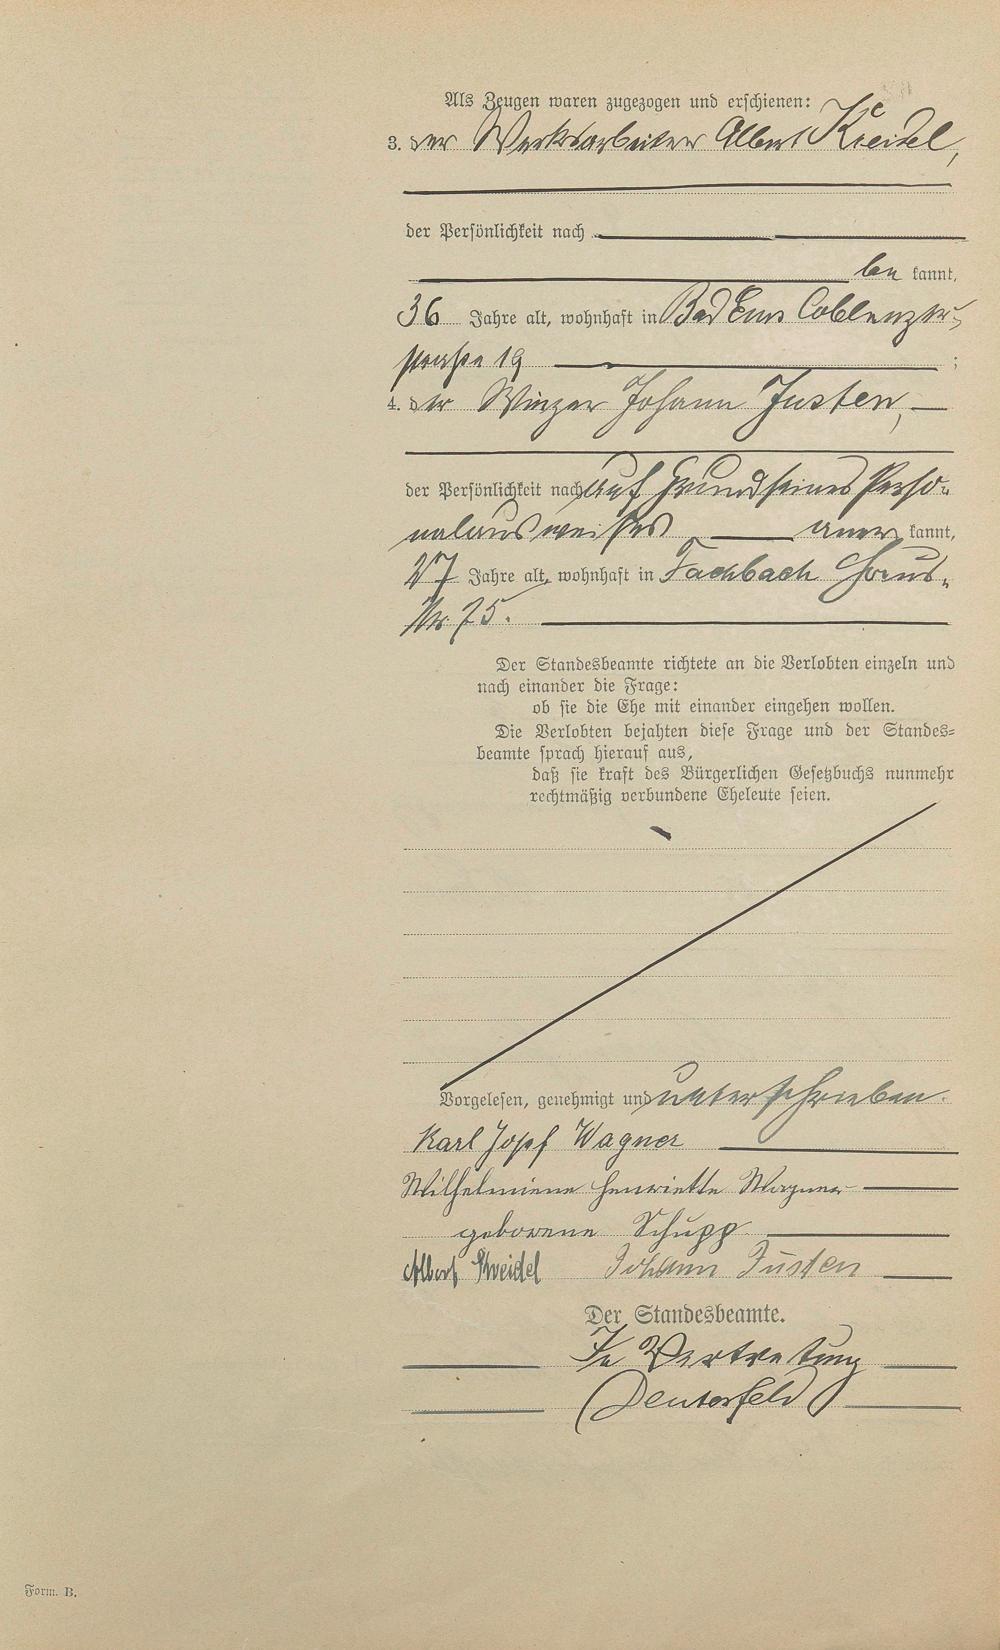 Als Zeugen waren zugezogen und erschienen:
3. der Werksarbeiter Albert Kreidel,
der Persönlichkeit nach
be kannt,
36 Jahre alt, wohnhaft in Bad Ems Coblenzer-
straße 19 ;
4. der Winzer Johann Justen,
der Persönlichkeit nach auf Grund seines Perso-
nalausweises aner kannt,
27 Jahre alt, wohnhaft in Fachbach Haus-
Nr. 75.
Der Standesbeamte richtete an die Verlobten einzeln und
nach einander die Frage:
ob sie die Ehe mit einander eingehen wollen.
Die Verlobten bejahten diese Frage und der Standes-
beamte sprach hierauf aus,
daß sie kraft des Bürgerlichen Gesetzbuchs nunmehr
rechtmäßig verbundene Eheleute seien.
Vorgelesen, genehmigt und unterschrieben.
Karl Josef Wagner
Wilhelmiene Henriette Wagner
geborene Schupp
Albert Kreidel Johann Justen
Der Standesbeamte.
In Vertretung
Form. B.